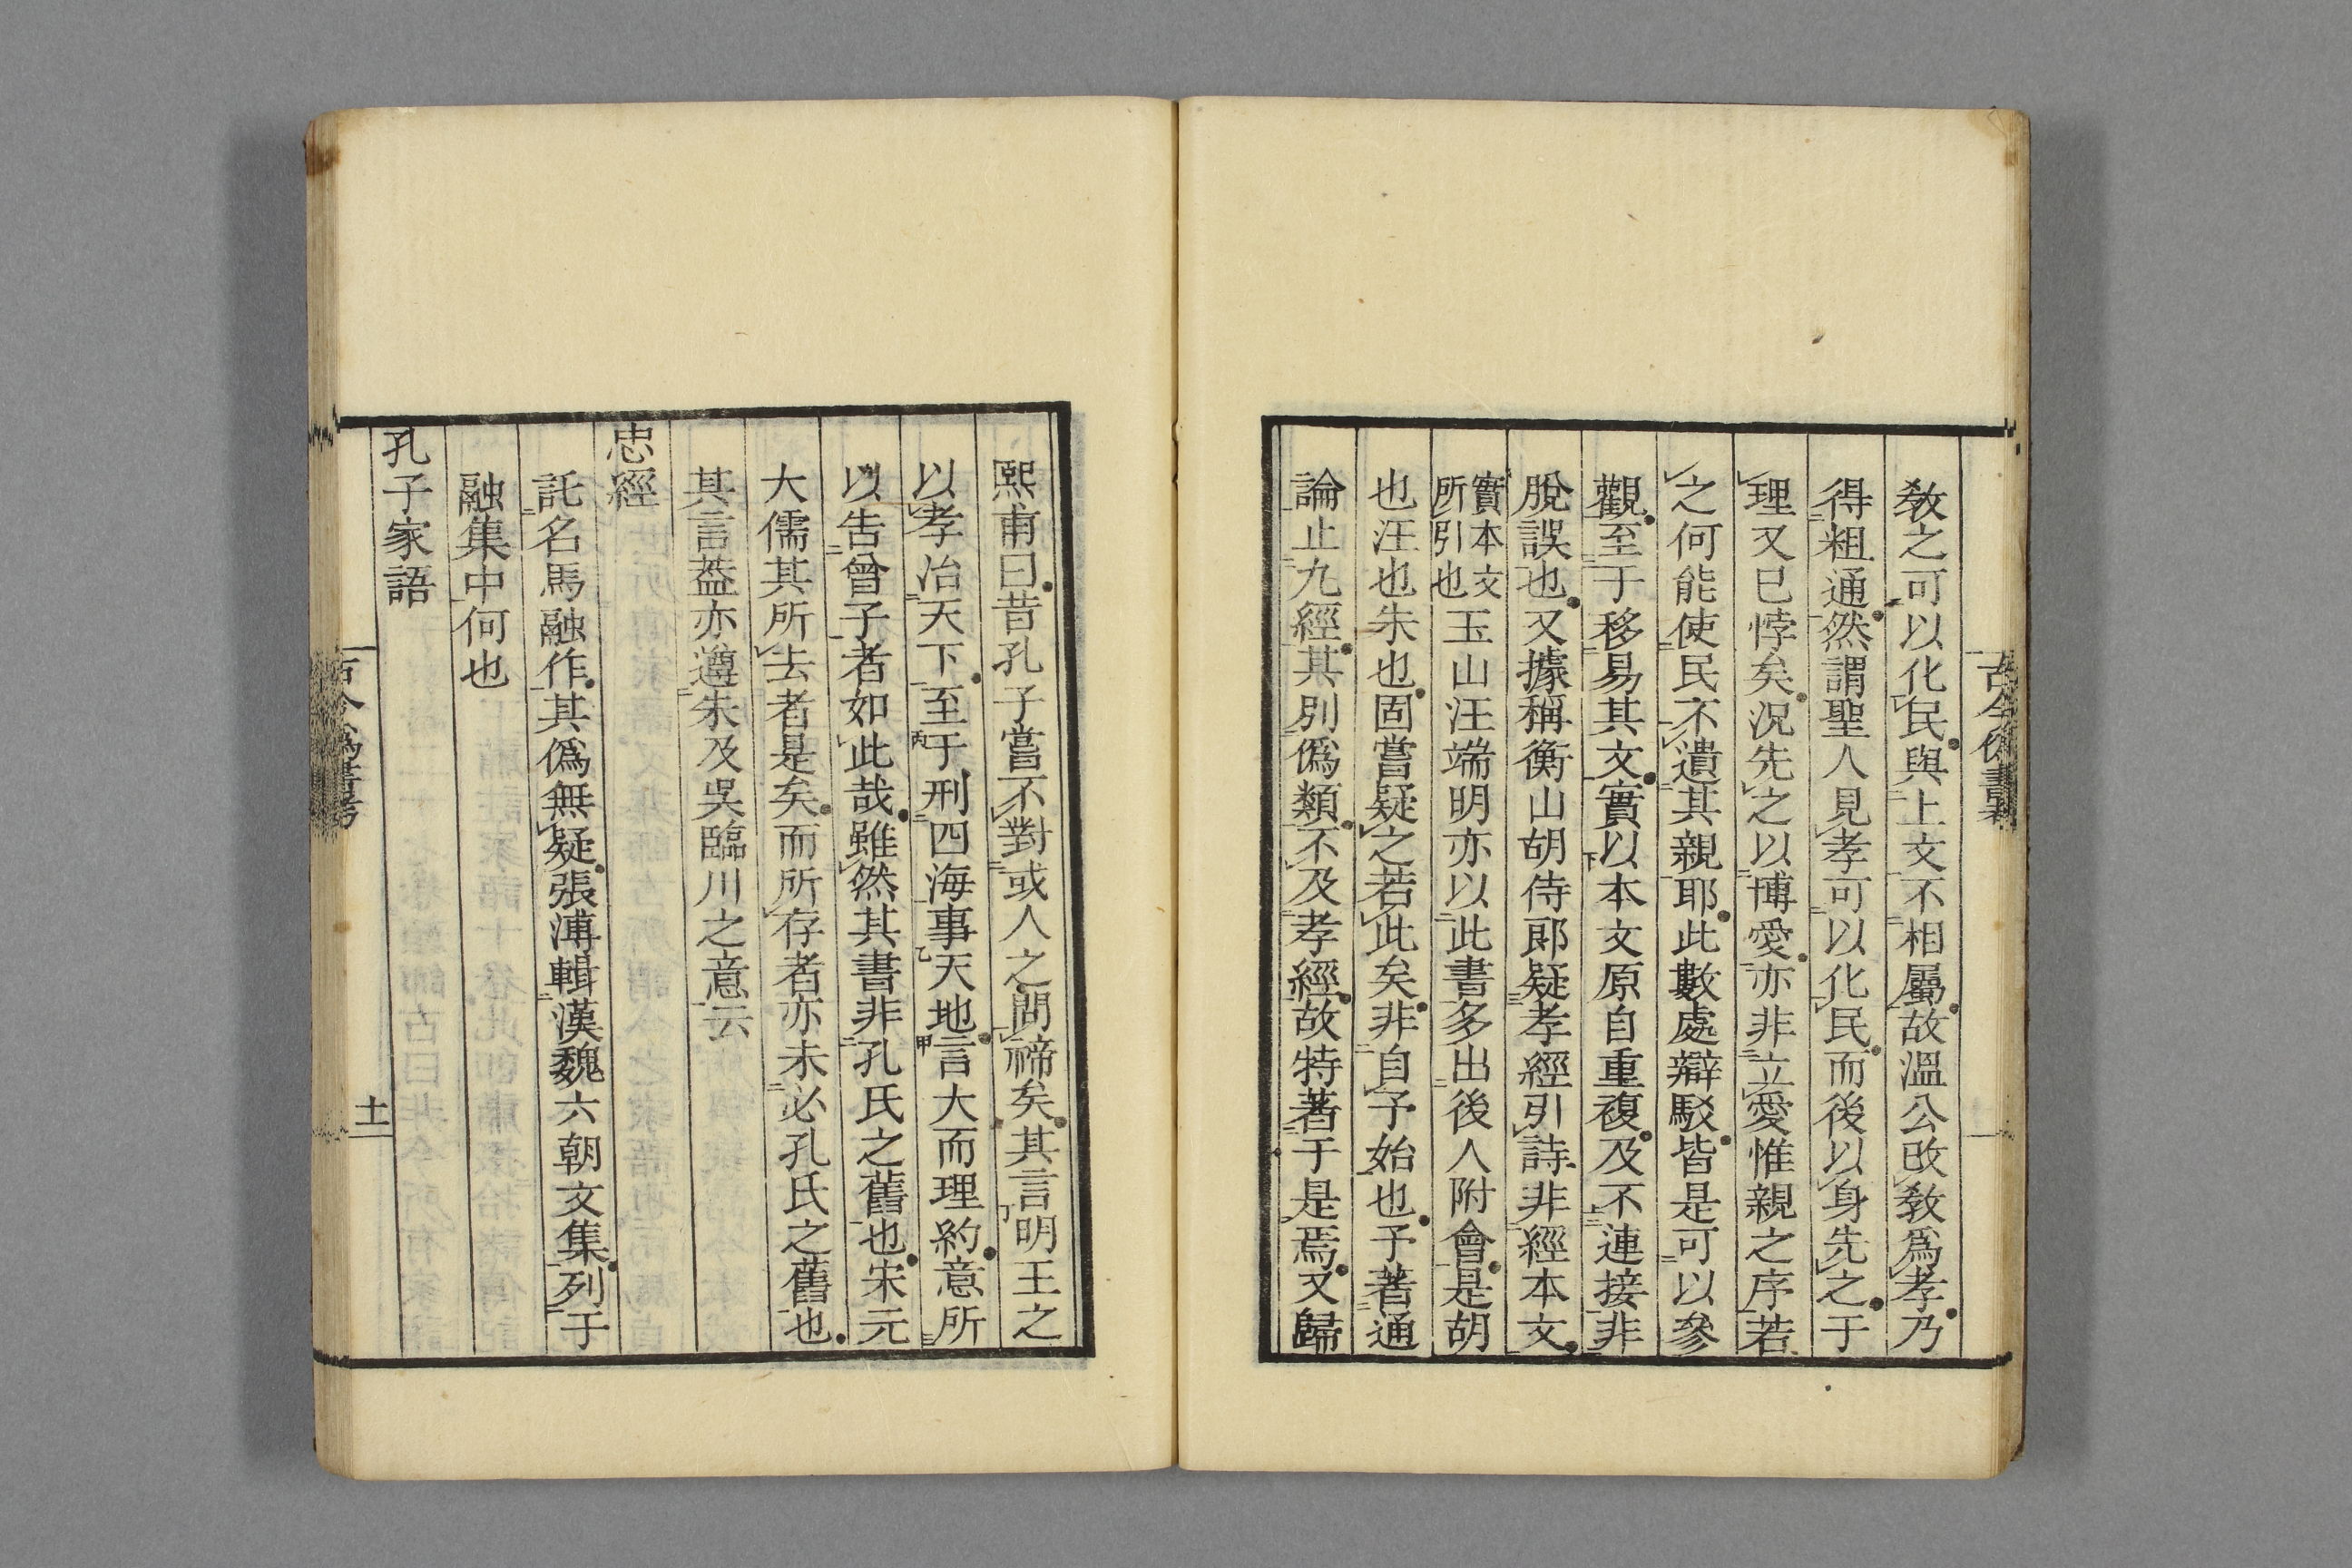 古今僞書考
敎之可以化民與上文不相屬故溫公改敎爲孝乃
得粗通然謂聖人見孝可以化民而後以身先之于
理又已悖矣况先之以博愛亦非立愛惟親之序若
之何能使民不遺其親耶此數處辯駁皆是可以參
觀至于移易其文實以本文原自重複及不連接非
脫誤也又據稱衡山胡侍郎疑孝經引詩非經本文
實本文所引也玉山汪端明亦以此書多出後人附會是胡
也汪也朱也固嘗疑之若此矣非自予始也予著通
論止九經其別僞類不及孝經故特著于是焉又歸
熙甫曰昔孔子嘗不對或人之問禘矣其言明王之
以孝治天下至于刑四海事天地言大而理約意所
以告曾子者如此哉雖然其書非孔氏之舊也宋元
大儒其所去者是矣而所存者亦未必孔氏之舊也
其言葢亦遵朱及吳臨川之意云
忠經
託名馬融作其僞無疑張溥輯漢魏六朝文集列于
融集中何也
孔子家語
古今僞書考
十一